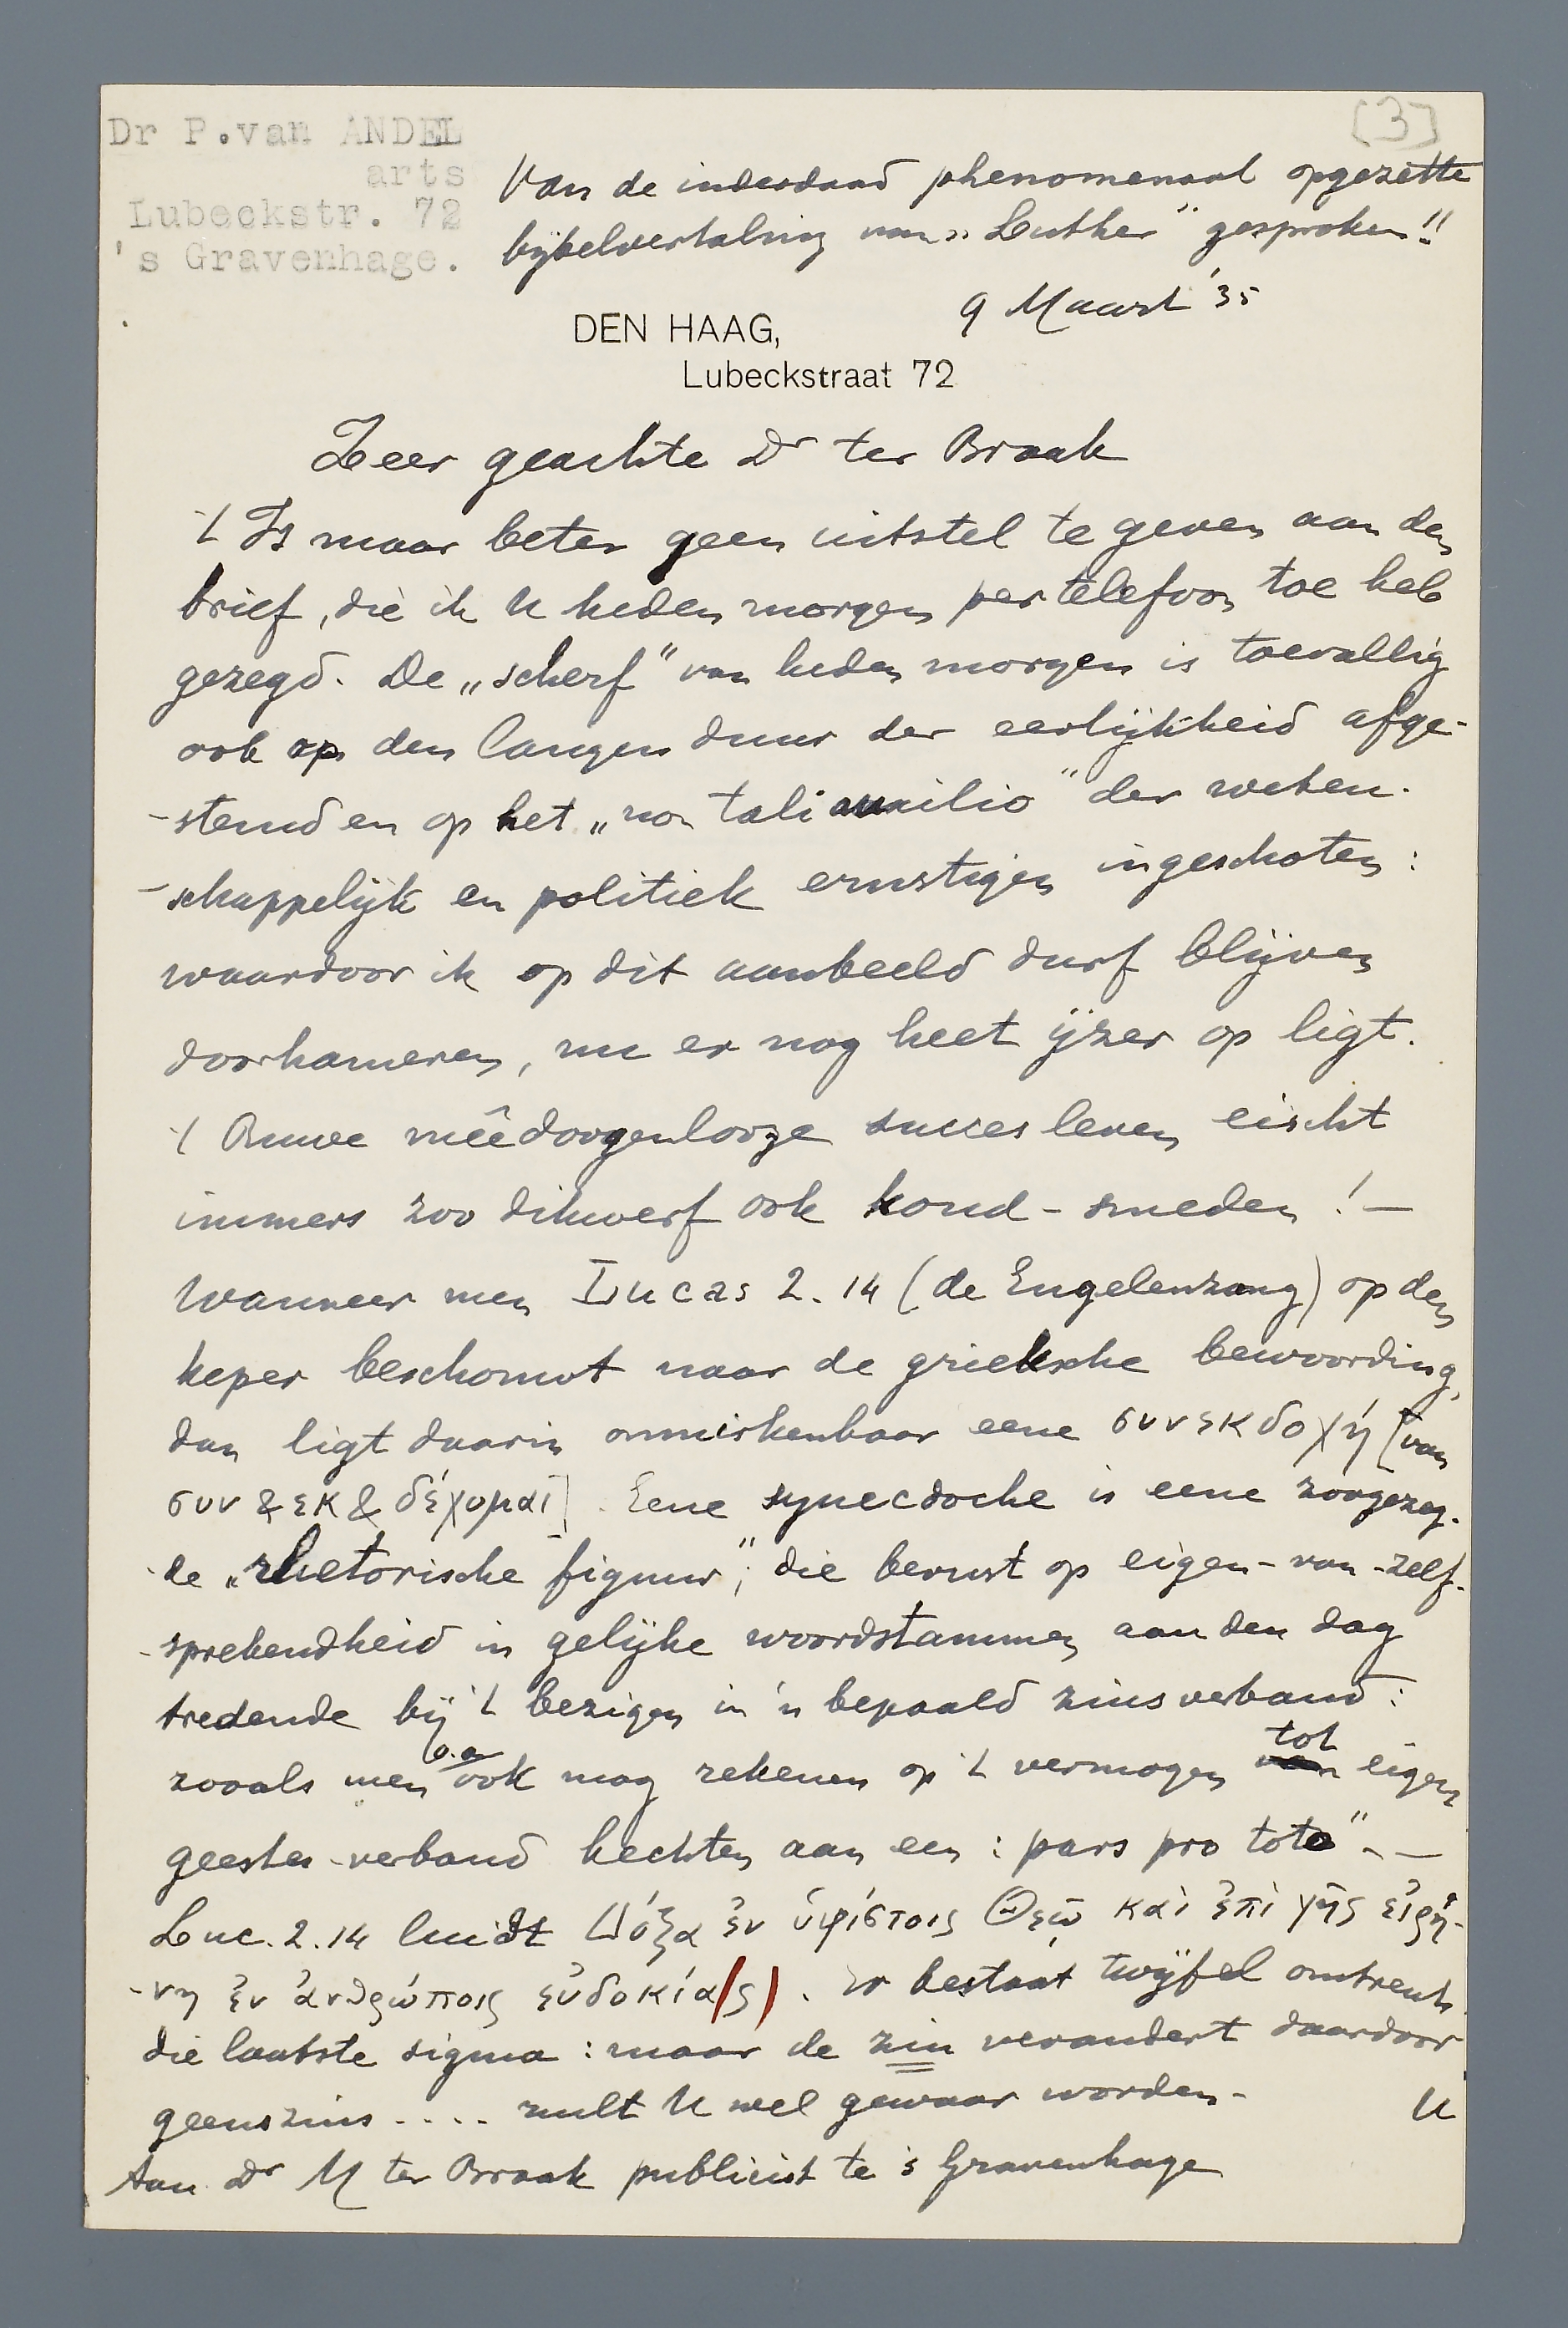 [3]
Dr P.van ANDEL
arts
Lubeckstr. 72
's Gravenhage.
Van de inderdaad phenomenaal opgezette
bijbelvertaling van „Luther" gesproken!!
9 Maart '35
DEN HAAG,
Lubeckstraat 72
Zeer geachte Dr ter Braak
't Is maar beter geen uitstel te geven aan den
brief, die ik U heden morgen per telefoon toe heb
gezegd. De „scherf" van heden morgen is toevallig
ook op den langen duur der eerlijkheid afge-
-stemd en op het „non tali auxilio" der weten-
-schappelijk en politiek ernstigen ingeschoten:
waardoor ik op dit aanbeeld durf blijven
doorhameren, nu er nog heet ijzer op ligt.
't Ruwe mêedoogenlooze succes leven eischt
immers zoo dikwerf ook koud-smeden! —
Wanneer men Lucas 2.14 (de Engelenzang) op den
keper beschouwt naar de grieksche bewoording,
dan ligt daarin onmiskenbaar eene συνεκδοχή [van
συν & εκ & δέχομαι]. Eene synecdoche is eene zoogezeg-
-de „rhetorische figuur", die berust op eigen-van-zelf-
-sprekendheid in gelijke woordstammen aan den dag
tredende bij 't bezigen in 'n bepaald zinsverband:
zooals men o.a. ook mag rekenen op 't vermogen tot eigen
geestes-verband hechten aan een: pars pro toto". —
Luc. 2.14 luidt Δόξα ἐν ὑψίστοις Θεῷ καὶ ἐπὶ γῆς εἰρή-
-νη ἐν ἀνθρώποις εὐδοκία(ς). Er bestaat twijfel omtrent
die laatste sigma: maar de zin verandert daardoor
geenszins .... zult U wel gewaar worden.
U
Aan Dr M ter Braak publicist te 's Gravenhage